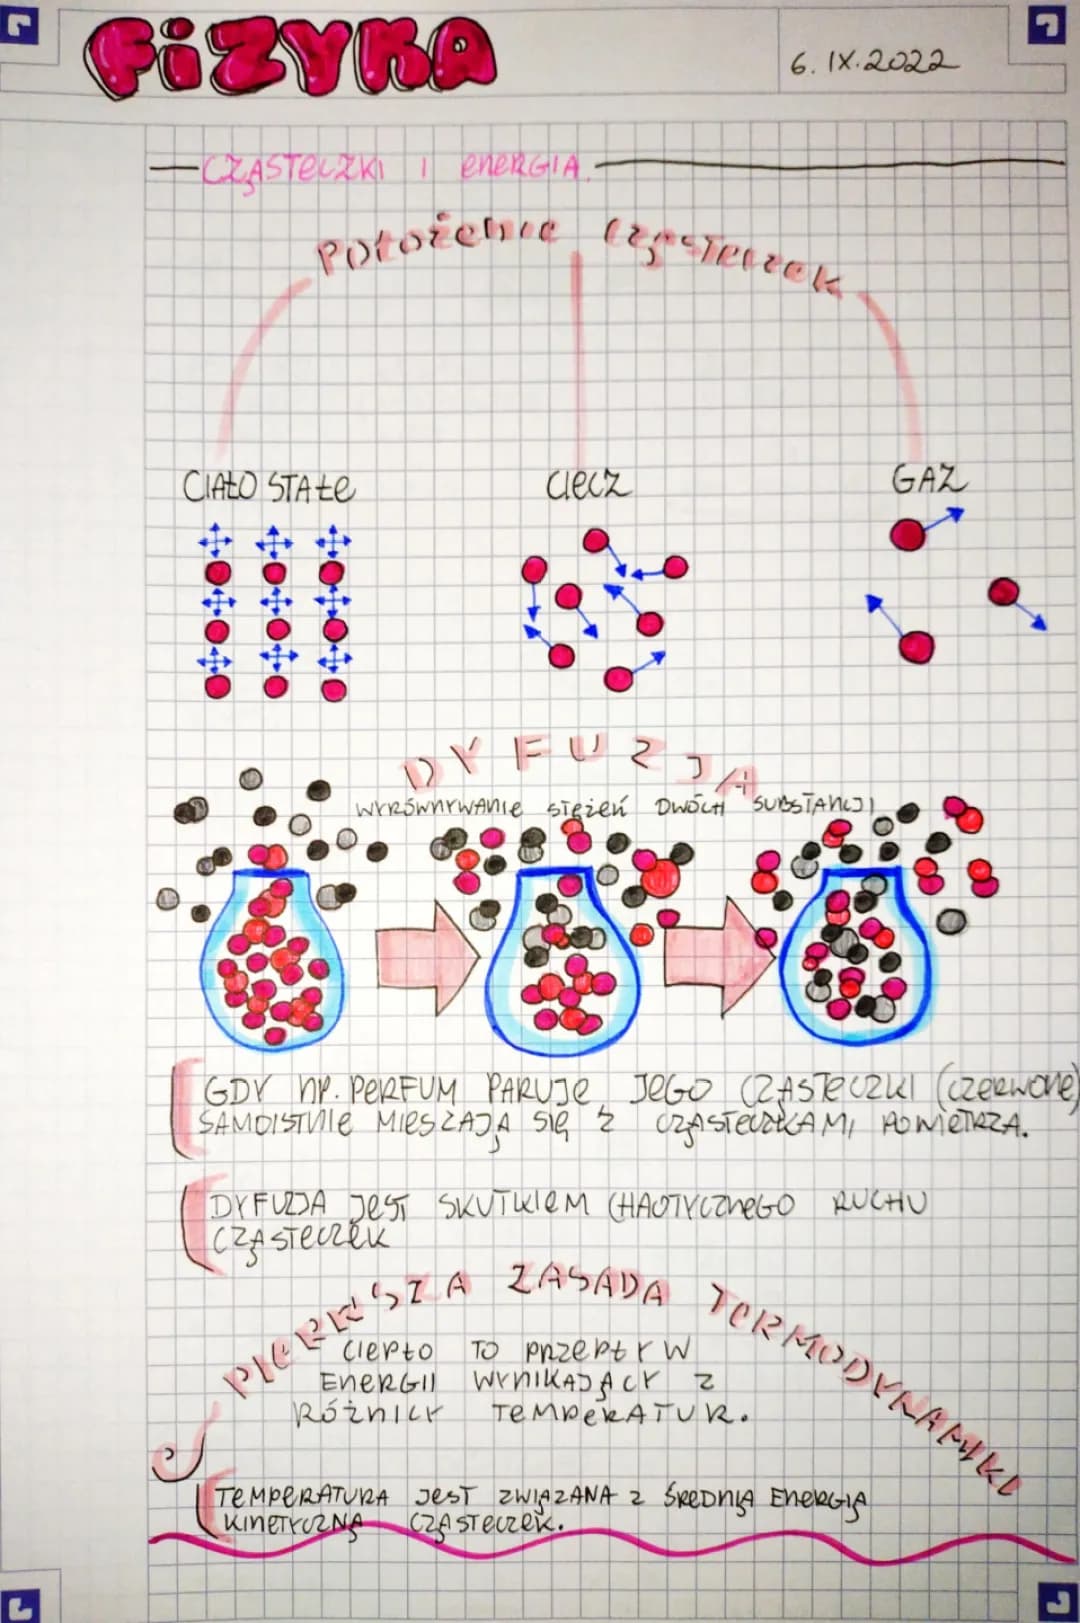 FiZYKA
6. IX. 2022
CZĄSTECZKI I ENERGIA.
Położenie cząsteczek
CIAŁO STAŁE
CIECZ
GAZ
DYFUZJA
WYRÓWNYWANIE STĘŻEŃ DWÓCH SUBSTANCJI
GDY NP. PERFUM PARUJE, JEGO CZĄSTECZKI (CZERWONE)
SAMOISTNIE MIESZAJĄ SIĘ Z CZĄSTECZKAMI POWIETRZA.
DYFUZJA JEST SKUTKIEM CHAOTYCZNEGO RUCHU
CZĄSTECZEK
PIERWSZA ZASADA TERMODYNAMIKI
CIEPŁO TO PRZEPŁYW
ENERGII WYNIKAJĄCY Z
RÓŻNICY TEMPERATUR.
TEMPERATURA JEST ZWIĄZANA Z ŚREDNIĄ ENERGIĄ
KINETYCZNĄ CZĄSTECZEK.